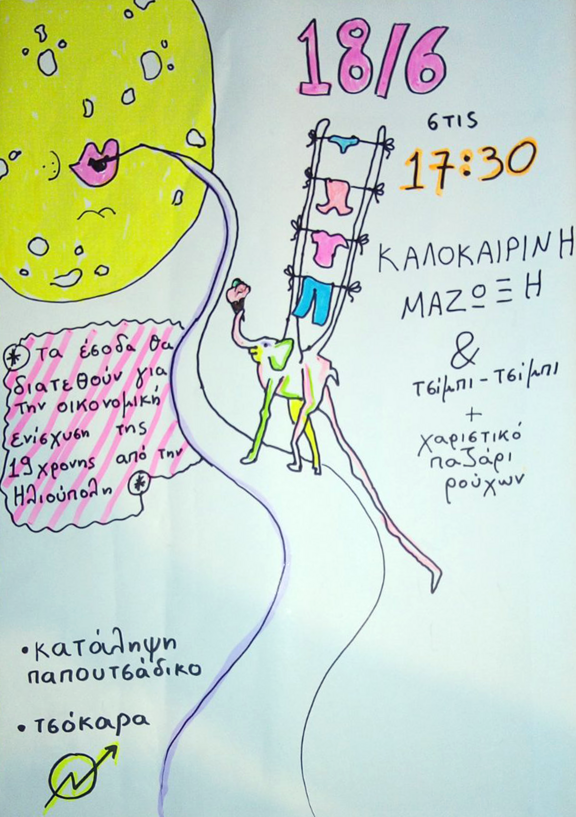 18/6
στις
17:30
ΚΑΛΟΚΑΙΡΙΝΗ
ΜΑΖΩΞΗ
&
τσίμπι-τσίμπι
+
χαριστικό
παζάρι
ρούχων
* Τα έσοδα θα
διατεθούν για
την οικονομική
ενίσχυση της
19χρονης από την
Ηλιούπολη *
• κατάληψη
παπουτσάδικο
• τσόκαρα